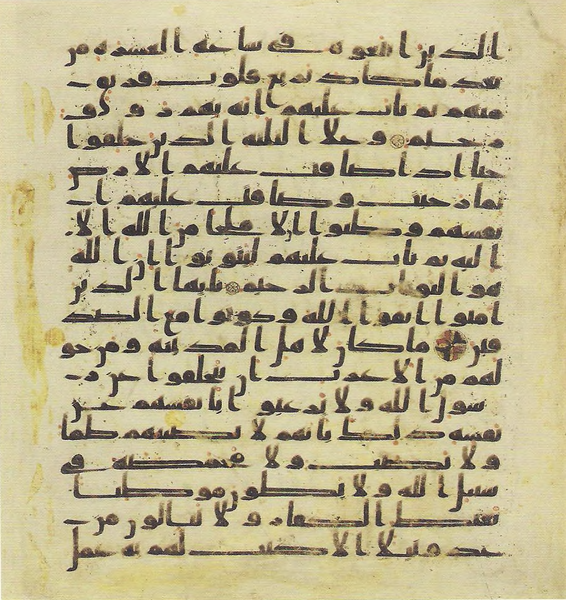 الذين اتبعوه في ساعة العسرة من
بعد ما كاد تزيغ قلوب فريق
منهم ثم تاب عليهم انه بهم روف
رحيم وعلا الثلثة الذين خلفوا
حتا اذا ضاقت عليهم الارض
بما رحبت وضاقت عليهم ا
نفسهم وظنوا ان لا ملجا من الله الا
اليه ثم تاب عليهم ليتوبوا ان الله
هو التواب الرحيم يايها الذين
امنوا اتقوا الله وكونوا مع الصد
قين ما كان لاهل المدينة ومن حو
لهم من الاعراب ان يتخلفوا عن ر
سول الله ولا يرغبوا بانفسهم عن
نفسه ذلك بانهم لا يصيبهم ظما
ولا نصب ولا مخمصة في
سبيل الله ولا يطون موطيا
يغيظ الكفار ولا ينالون من
عدو نيلا الا كتب لهم به عمل